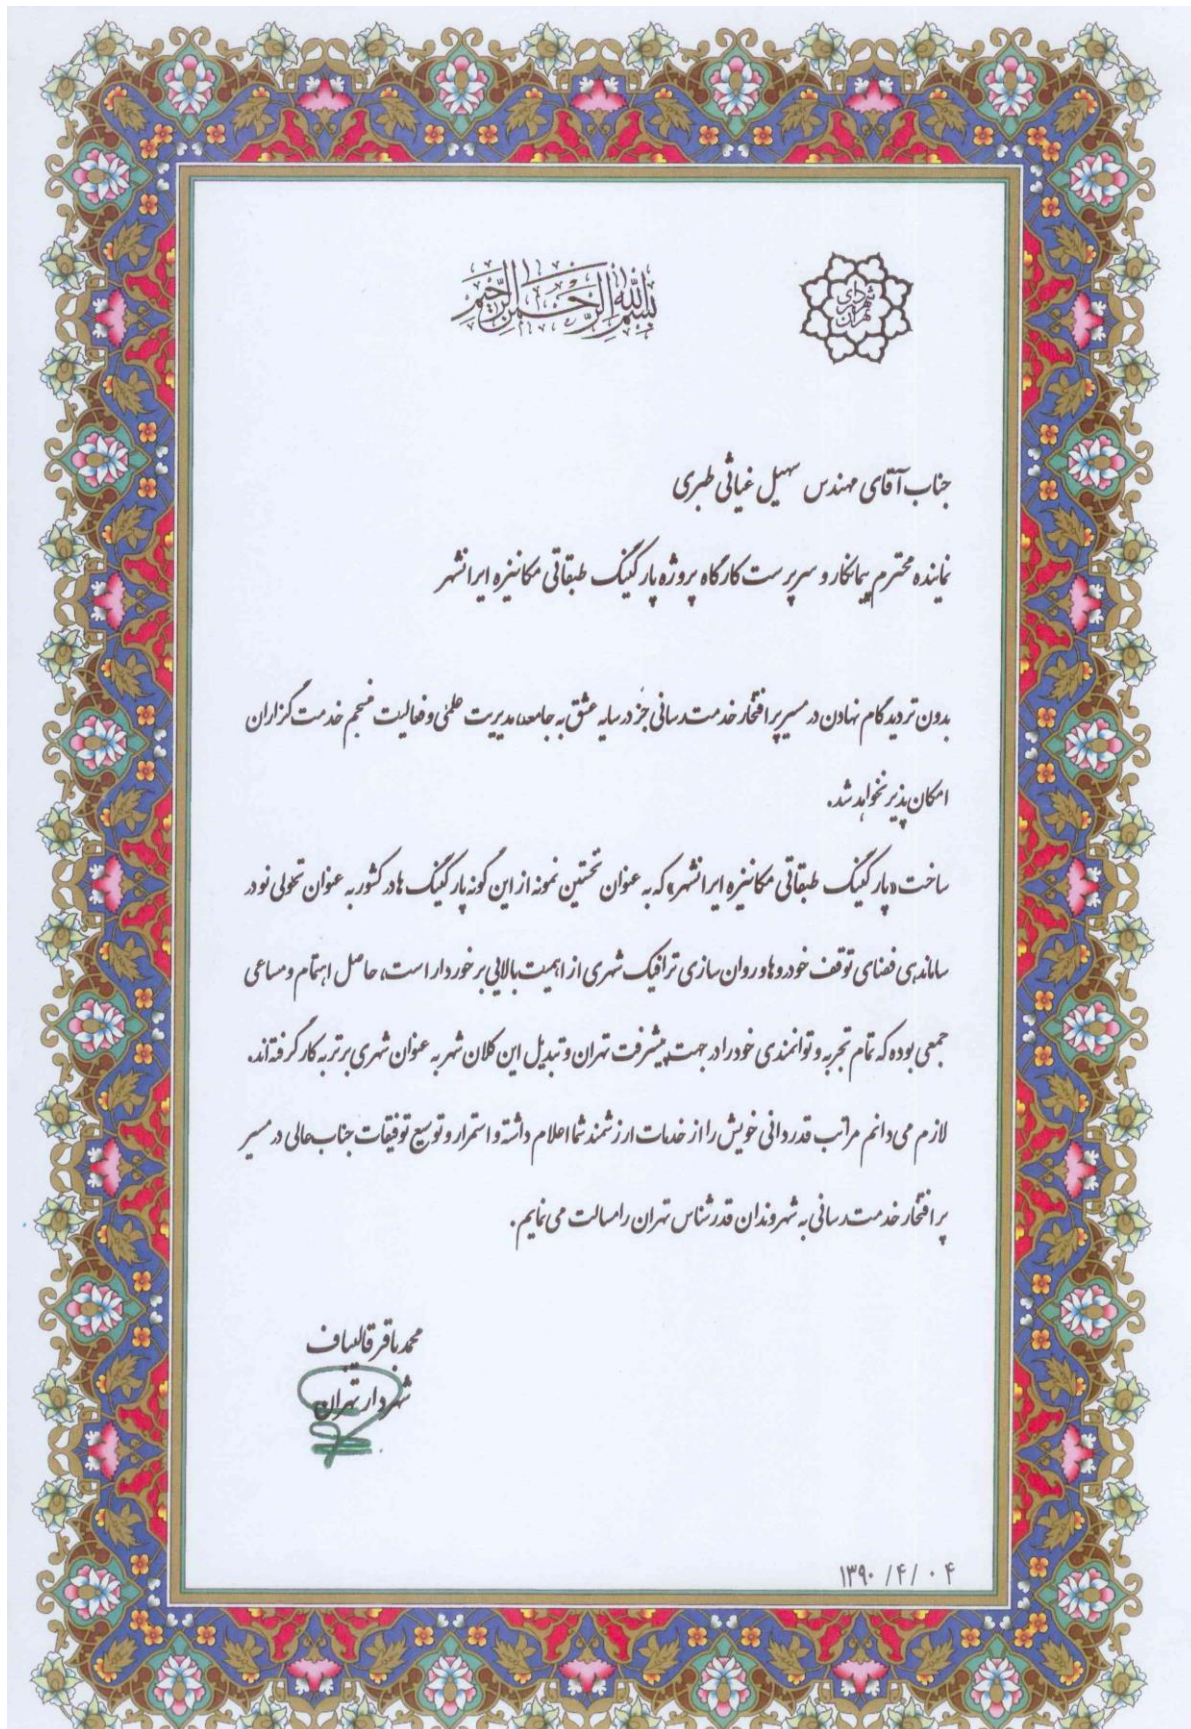 بسم الله الرحمن الرحیم
شهرداری تهران
جناب آقای مهندس سهیل غیاثی طبری
نماینده محترم پیمانکار و سرپرست کارگاه پروژه پارکینگ طبقاتی مکانیزه ایرانشهر
بدون تردید گام نهادن در مسیر پر افتخار خدمت رسانی جز در سایه عشق به جامعه، مدیریت علمی و فعالیت منسجم خدمت گزاران
امکان پذیر نخواهد شد.
ساخت «پارکینگ طبقاتی مکانیزه ایرانشهر» که به عنوان نخستین نمونه از این گونه پارکینگ ها در کشور به عنوان تحولی نو در
ساماندهی فضای توقف خودروها و روان سازی ترافیک شهری از اهمیت بالایی برخوردار است، حاصل اهتمام و مساعی
جمعی بوده که تمام تجربه و توانمندی خود را در جهت پیشرفت تهران و تبدیل این کلان شهر به عنوان شهری برتر به کار گرفته اند.
لازم می دانم مراتب قدردانی خویش را از خدمات ارزشمند شما اعلام داشته و استمرار و توسیع توفیقات جناب عالی در مسیر
پر افتخار خدمت رسانی به شهروندان قدرشناس تهران را مسالت می نمایم.
محمد باقر قالیباف
شهردار تهران
۱۳۹۰/۴/۰۴